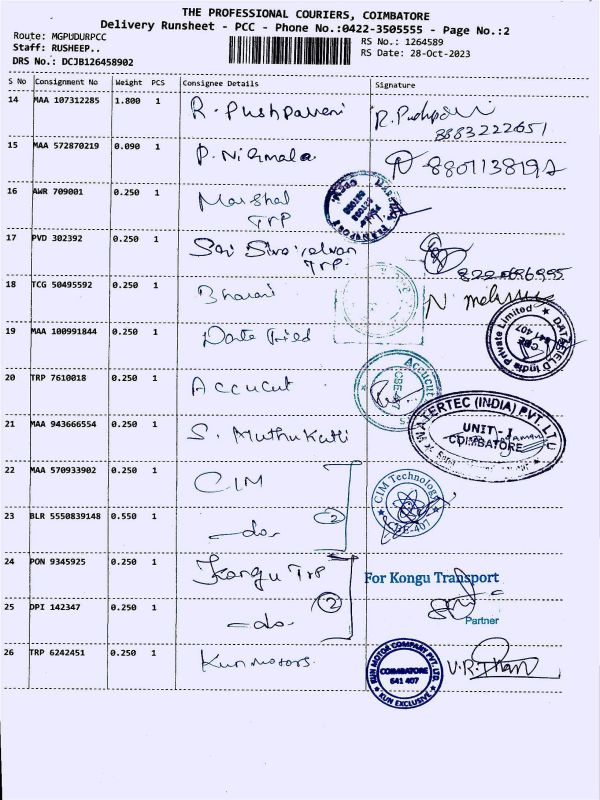 THE PROFESSIONAL COURIERS, COIMBATORE
Delivery Runsheet - PCC - Phone No.:0422-3505555 - Page No.:2
Route: MGPUDURPCC
RS No.: 1264589
Staff: RUSHEEP..
RS Date: 28-Oct-2023
DRS No.: DCJB126458902
S No Consignment No Weight PCS Consignee Details Signature
14 MAA 107312285 1.800 1 R. Pushpaveni
8883222651
15 MAA 572870219 0.090 1 P. Nirmala
16 AWR 709001 0.250 1 Marshal
TRP
17 PVD 302392 0.250 1
TRP.
18 TCG 50495592 0.250 1 Bharani
DATAFIELD India Private Limited
CBE
641 407
19 MAA 100991844 0.250 1
20 TRP 7610018 0.250 1 Accucut
Accucut
CBE-407
21 MAA 943666554 0.250 1 S. Muthukutti
WATERTEC (INDIA) PVT. LTD
UNIT-I
COIMBATORE
22 MAA 570933902 0.250 1 CIM
CIM Technology
CBE-407
23 BLR 5550839148 0.550 1 -do- 2
24 PON 9345925 0.250 1 Kongu TRP
For Kongu Transport
25 DPI 142347 0.250 1 -do- 2
Partner
26 TRP 6242451 0.250 1 Kun motors.
KUN MOTOR COMPANY PVT. LTD.
COIMBATORE
641 407
KUN EXCLUSIVE